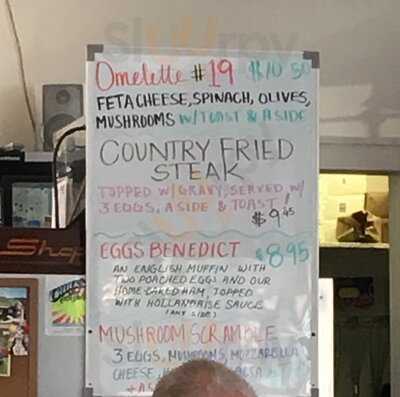 Omelette #19 $10.50
FETA CHEESE, SPINACH, OLIVES,
MUSHROOMS W/TOAST & A SIDE
COUNTRY FRIED
STEAK
TOPPED W/GRAVY, SERVED W/
3 EGGS, A SIDE & TOAST!
$9.45
EGGS BENEDICT $8.95
AN ENGLISH MUFFIN WITH
TWO POACHED EGGS AND OUR
HOME BAKED HAM, TOPPED
WITH HOLLANDAISE SAUCE
(ANY SIDE)
MUSHROOM SCRAMBLE
3 EGGS, MUSHROOMS, MOZZARELLA
CHEESE,
+ A S
Shop